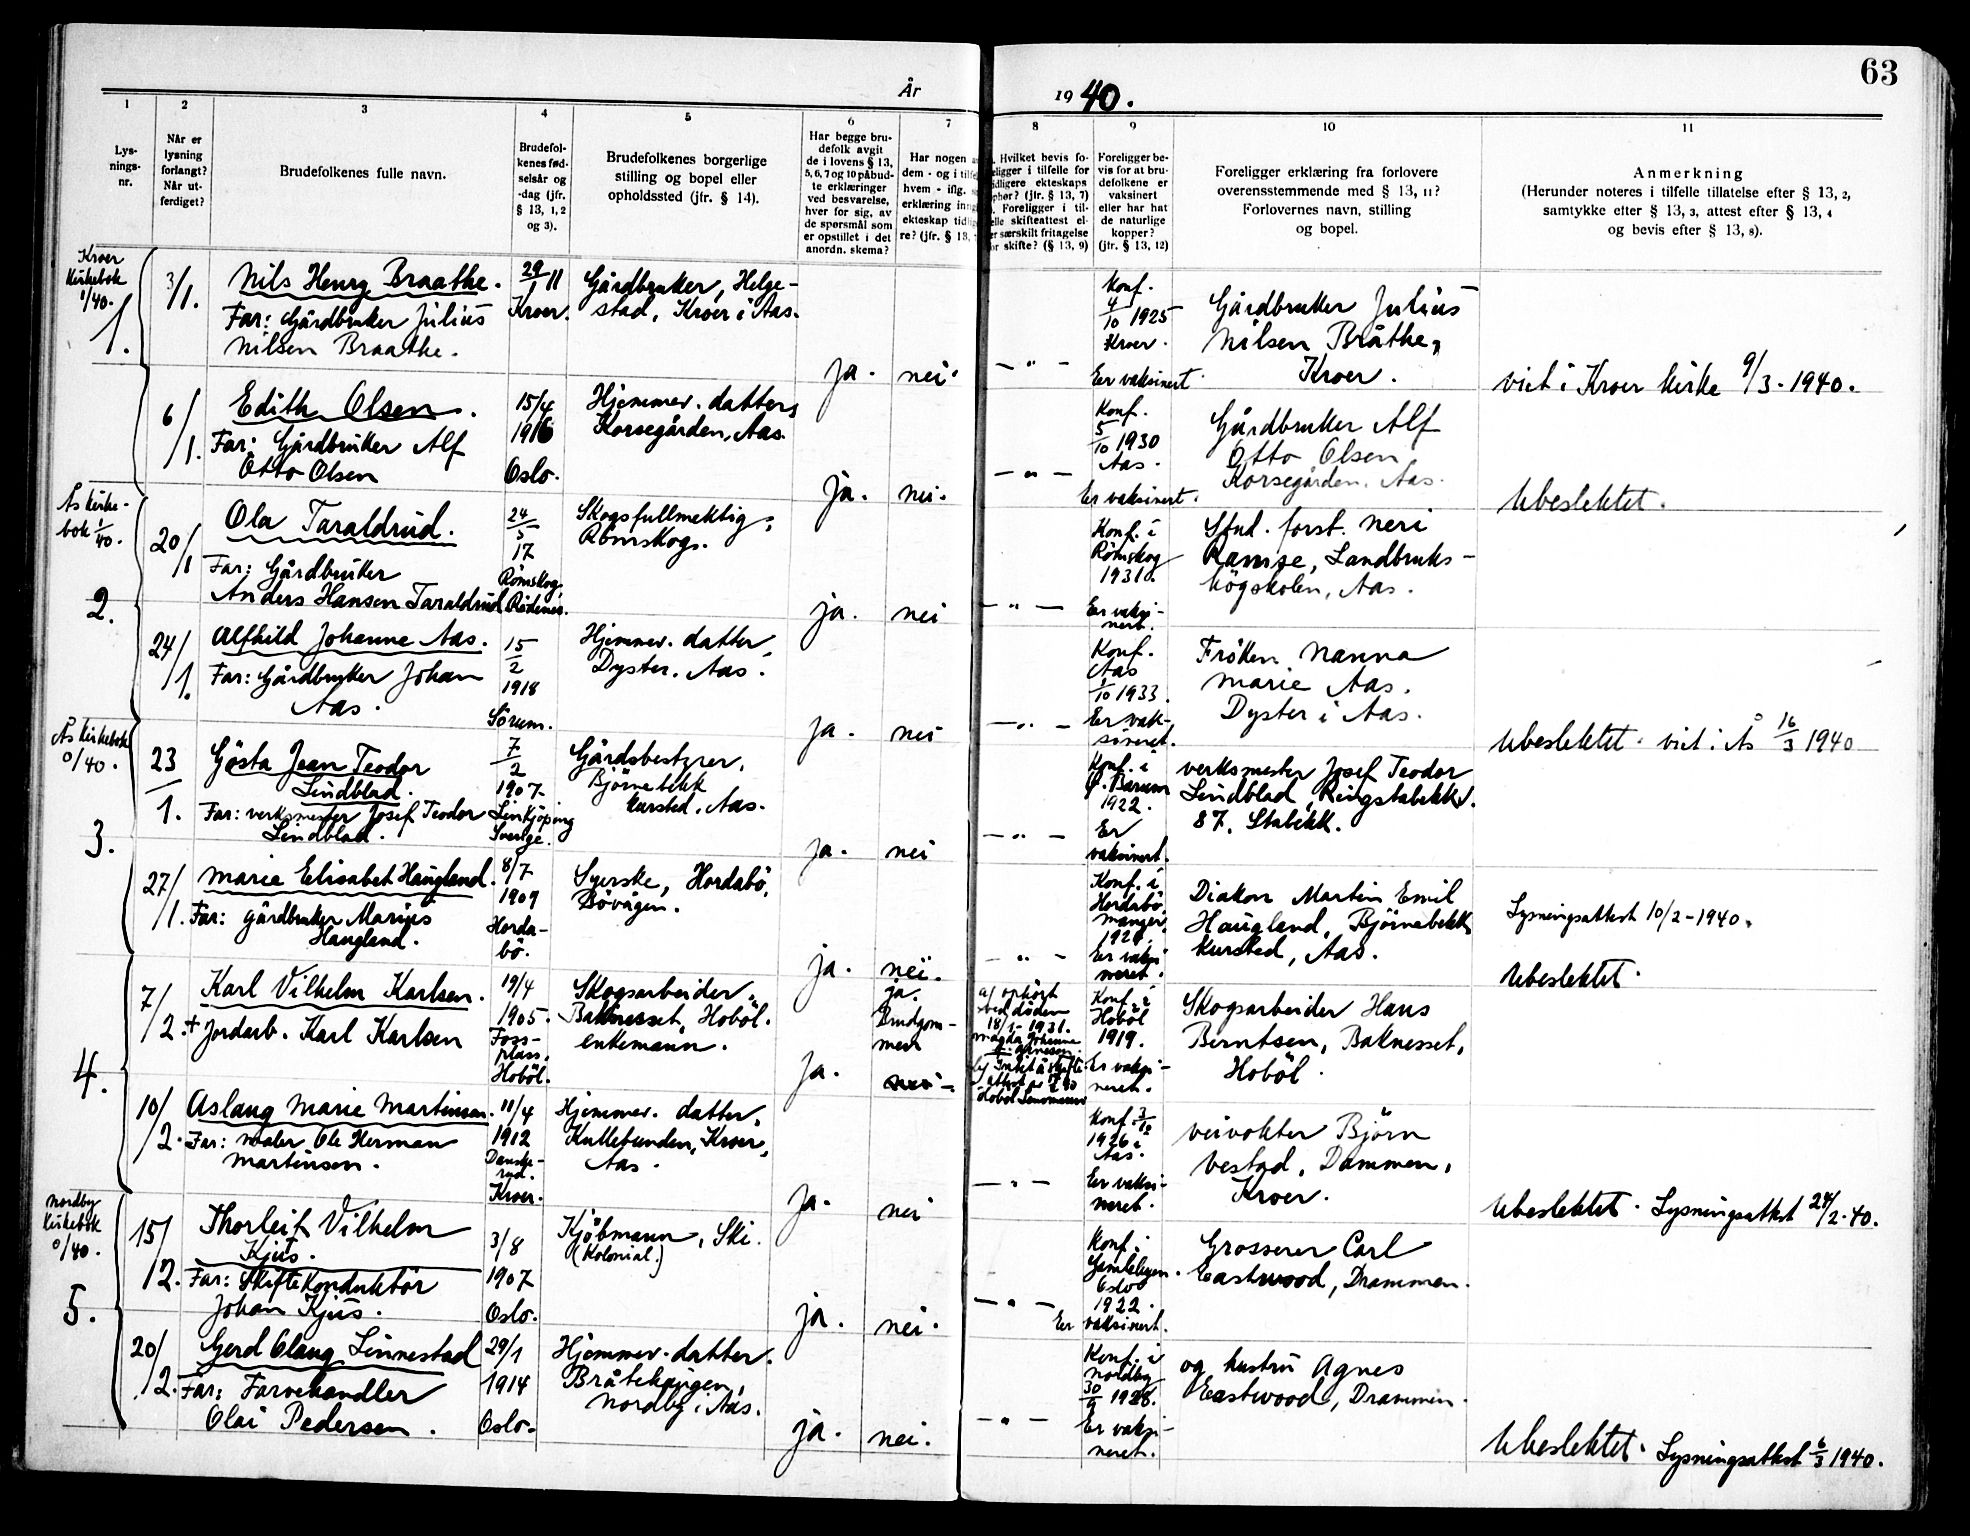 63
År
1940.
1
2
3
4
5
6
7
8
9
10
11
Lys-
nings-
nr.
Når er
lysning
forlangt?
Når ut-
ferdiget?
Brudefolkenes fulle navn.
Brudefol-
kenes fød-
selsår og
-dag (jfr.
§ 13, 1, 2
og 3).
Brudefolkenes borgerlige
stilling og bopel eller
opholdssted (jfr. § 14).
Har begge bru-
defolk avgit
de i lovens § 13,
5, 6, 7 og 10 påbud-
te erklæringer
ved besvarelse,
hver for sig, av
de spørsmål som
er opstillet i det
anordn. skema?
Har nogen
dem - og i tilfe
hvem - iflg.
erklæring inng
ekteskap tidlig
re? (jfr. § 13,
Hvilket bevis fo-
religger i tilfelle for
tidligere ekteskaps
ophør? (jfr. § 13, 7)
Foreligger i til-
felle skifteattest el-
ler særskilt fritagelse
for skifte? (§ 13, 9)
Foreligger be-
vis for at bru-
defolkene er
vaksinert
eller har hat
de naturlige
kopper?
(jfr. § 13, 12)
Foreligger erklæring fra forlovere
overensstemmende med § 13, 11?
Forlovernes navn, stilling
og bopel.
Anmerkning
(Herunder noteres i tilfelle tillatelse efter § 13, 2,
samtykke efter § 13, 3, attest efter § 13, 4
og bevis efter § 13, 8).
Kroer
Kirkebok
1/40.
1.
3/1.
Nils Henry Braathe.
Far: Gårdbruker Julius
Nilsen Braathe.
29/1 11
Kroer.
Gårdbruker, Helge-
stad, Kroer i Aas.
ja.
nei.
— " —
Konf.
4/10 1925
Kroer.
Er vaksinert.
Gårdbruker Julius
Nilsen Bråthe,
Kroer.
viet i Kroer kirke 9/3 - 1940.
6/1.
Edith Olsen.
Far: Gårdbruker Alf
Otto Olsen
15/4
1916
Oslo.
Hjemmev. datter,
Korsegården, Aas.
ja.
nei.
— " —
Konf.
5/10 1930
Aas.
Er vaksinert.
Gårdbruker Alf
Otto Olsen
Korsegården. Aas.
Ubeslektet.
Ås Kirke-
bok 1/40.
2.
20/1
Ola Taraldrud.
Far: Gårdbruker
Anders Hansen Taraldrud
24/5
17
Römskog,
Rödenes.
Skogsfullmektig,
Römskog.
ja.
nei
— " —
Konf. i
Römskog
1931.
Er vaksi-
nert.
Stud. forst. Neri
Ramse, Landbruks-
högskolen, Aas.
24/1.
Alfhild Johanne Aas.
Far: Gårdbruker Johan
Aas.
15/2
1918
Sörum.
Hjemmev. datter,
Dyster. Aas.
ja.
nei
— " —
Konf.
Aas
/10 1933.
Er vak-
sineret.
Fröken Nanna
Marie Aas.
Dyster i Aas.
Ubeslektet. viet i Ås 16/3 1940
Ås Kirkebok
0/40.
3.
23/1.
Gösta Jean Teodor
Lindblad.
Far: verksmester Josef Teodor
Lindblad.
7/2
1907.
Linköping
Sverige.
Gårdsbestyrer,
Björnebekk
kursted. Aas.
ja.
nei
— " —
Konf. i
Ø. Bærum
1922.
Er
vaksinert.
verksmester Josef Teodor
Lindblad, Ringstabekkv.
87. Stabekk.
27/1.
Marie Elisabet Haugland.
Far: gårdbruker Marius
Haugland.
8/7
1909
Horda-
bö.
Syerske, Hordabö,
Bövågen.
ja.
nei.
— " —
Konf. i
Hordabö,
Manger,
Er vaksi
neret.
Diakon Martin Emil
Haugland, Björnebekk
kursted, Aas.
Lysningsattest 10/2 - 1940.
Ubeslektet.
4.
7/2.
Karl Vilhelm Karlsen.
+ Jordarb. Karl Karlsen
19/4
1905.
Foss-
plass.
Hoböl.
Skogsarbeider,
Baknesset, Hoböl.
enkemann.
ja.
ja.
Brudgom-
men
a/ ophört
ved döden
1931.
Konf. i
Hoböl
1919.
Er vaksi-
neret.
Skogsarbeider Hans
Berntsen, Baknesset,
Hoböl.
10/2.
Aslaug Marie Martinsen.
Far: maler Ole Herman
Martinsen.
11/4
1912
Danske-
rud.
Kroer.
Hjemmev. datter,
Kullebunden, Kroer,
Aas.
ja.
nei
— " —
Konf.
1926 i
Aas.
Er vaksi-
neret.
veivokter Björn
Vestad, Dammen,
Kroer.
Ubeslektet. Lysningsattest 24/2.40.
Nordby
Kirkebok
0/40.
5.
15/2.
Thorleif Vilhelm
Kjus.
Far: Skiftekonduktör
Johan Kjus.
3/8
1907
Oslo.
Kjöbmann, Ski.
(Kolonial.)
ja.
nei.
— " —
Konf. i
Gamlebyen.
Oslo
1922.
Er vaksinert.
Grosserer Carl
Eastwood, Drammen.
20/2.
Gerd Olaug Linnestad
Far: Farvehandler
Olai Pedersen.
29/1
1914
Oslo.
Hjemmev. datter.
Bråtehaugen,
Nordby i Aas.
ja.
nei.
— " —
Konf. i
Nordby
30/9 1928.
Er vaksi-
neret.
og hustru Agnes
Eastwood, Drammen.
Ubeslektet. Lysningsattest 6/3 1940.